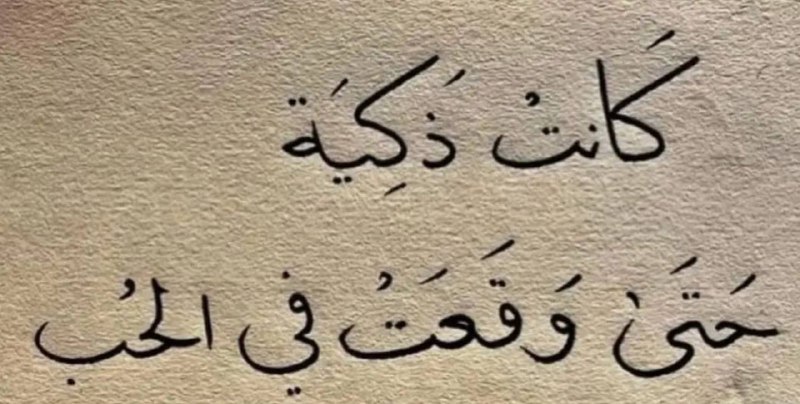 كَانتْ ذَكِيَة
حَتَىٰ وَقَعَتْ في الحُب